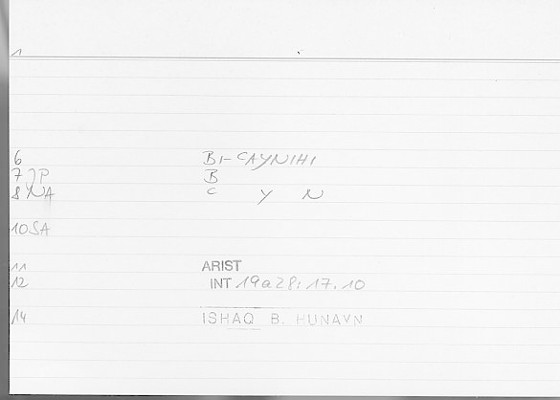 1
6 BI-CAYNIHI
7 JP B
8 XNA C Y N
10 SA
11 ARIST
12 INT 19a28:17.10
14 ISHAQ B. HUNAYN